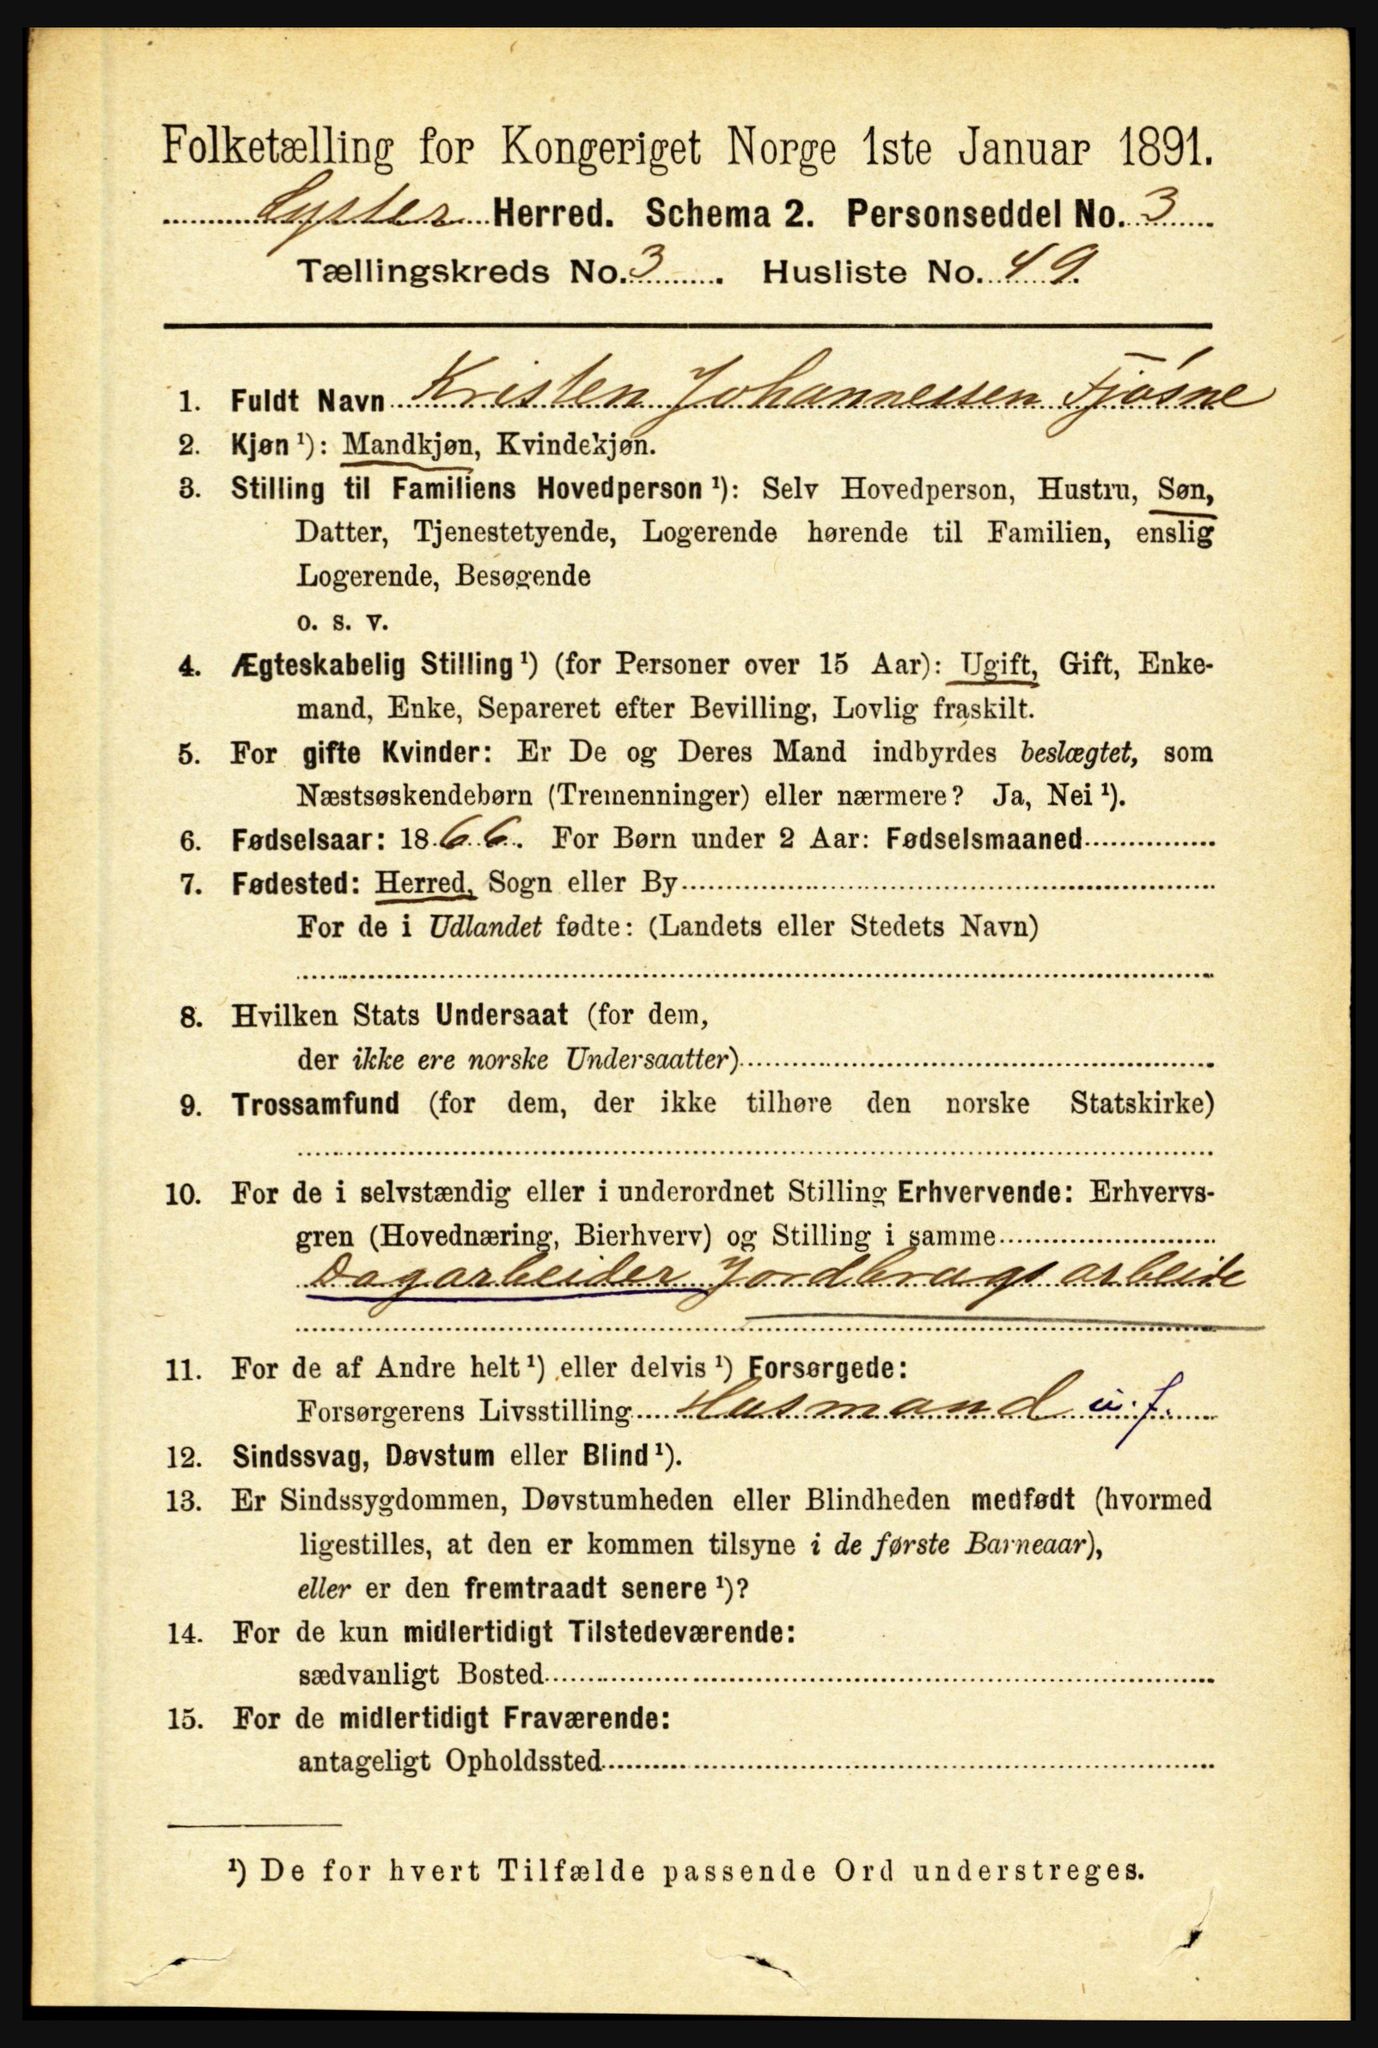 Folketælling for Kongeriget Norge 1ste Januar 1891.
Lyster Herred. Schema 2. Personseddel No. 3
Tællingskreds No. 3. Husliste No. 49.
1. Fuldt Navn Kristen Johannessen Fjósne
2. Kjøn ¹): Mandkjøn, Kvindekjøn.
3. Stilling til Familiens Hovedperson ¹): Selv Hovedperson, Hustru, Søn,
Datter, Tjenestetyende, Logerende hørende til Familien, enslig
Logerende, Besøgende
o. s. v.
4. Ægteskabelig Stilling ¹) (for Personer over 15 Aar): Ugift, Gift, Enke-
mand, Enke, Separeret efter Bevilling, Lovlig fraskilt.
5. For gifte Kvinder: Er De og Deres Mand indbyrdes beslægtet, som
Næstsøskendebørn (Tremenninger) eller nærmere? Ja, Nei ¹).
6. Fødselsaar: 1866. For Børn under 2 Aar: Fødselsmaaned
7. Fødested: Herred, Sogn eller By
For de i Udlandet fødte: (Landets eller Stedets Navn)
8. Hvilken Stats Undersaat (for dem,
der ikke ere norske Undersaatter)
9. Trossamfund (for dem, der ikke tilhøre den norske Statskirke)
10. For de i selvstændig eller i underordnet Stilling Erhvervende: Erhvervs-
gren (Hovednæring, Bierhverv) og Stilling i samme
Dagarbeider Jordbrugsarbeide
11. For de af Andre helt ¹) eller delvis ¹) Forsørgede:
Forsørgerens Livsstilling Husmand u. j.
12. Sindssvag, Døvstum eller Blind ¹).
13. Er Sindssygdommen, Døvstumheden eller Blindheden medfødt (hvormed
ligestilles, at den er kommen tilsyne i de første Barneaar),
eller er den fremtraadt senere ¹)?
14. For de kun midlertidigt Tilstedeværende:
sædvanligt Bosted
15. For de midlertidigt Fraværende:
antageligt Opholdssted
¹) De for hvert Tilfælde passende Ord understreges.